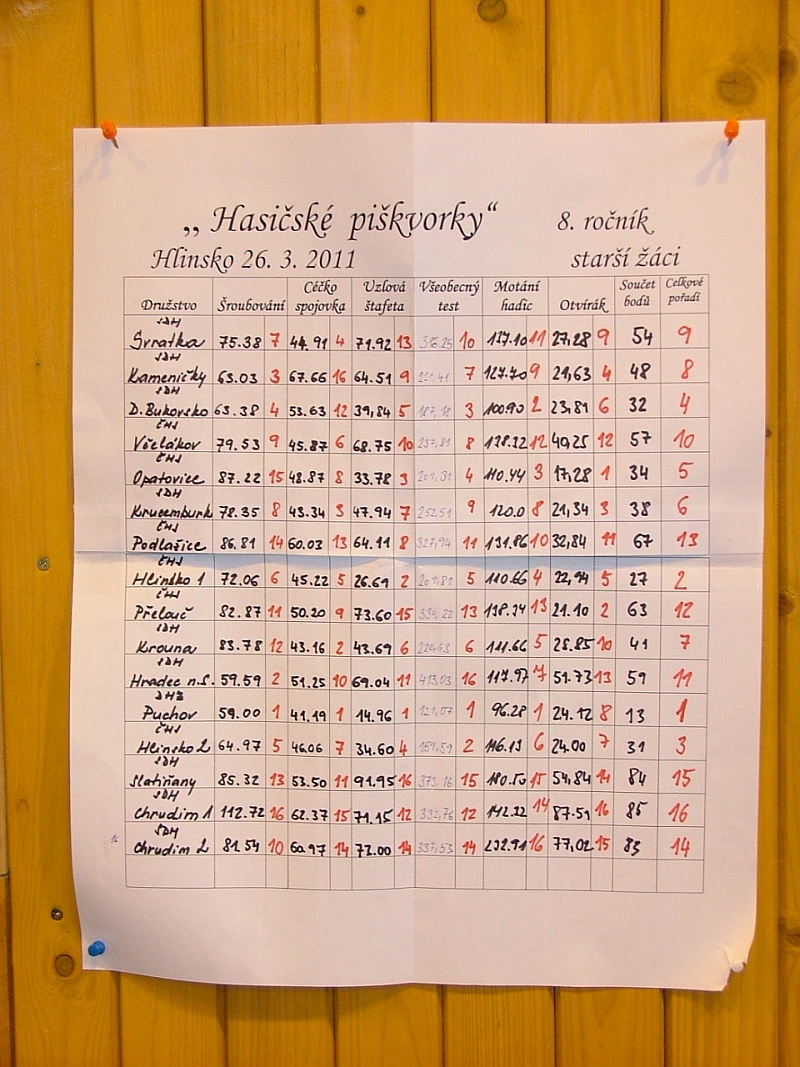 „Hasičské piškvorky“ 8. ročník
Hlinsko 26. 3. 2011 starší žáci
Družstvo Šroubování Céčko spojovka Uzlová štafeta Všeobecný test Motání hadic Otvírák Součet bodů Celkové pořadí
SDH Svratka 75.38 7 44.91 4 71.92 13 316.25 10 137.10 11 27,28 9 54 9
SDH Kameničky 63.03 3 67.66 16 64.51 9 7 127.70 9 21,63 4 48 8
SDH D. Bukovsko 63.38 4 53.63 12 39,84 5 187,18 3 100.90 2 23,81 6 32 4
ČHJ Včelákov 79.53 9 45.87 6 68.75 10 237,81 8 138.32 12 40,25 12 57 10
ČHJ Opatovice 87.22 15 48.87 8 33.78 3 201,31 4 110.44 3 17,28 1 34 5
SDH Krucemburk 78.35 8 43.34 3 47.94 7 252,51 9 120.0 8 21,34 3 38 6
ČHJ Podlažice 86.81 14 60.03 13 64.11 8 327,94 11 131.86 10 32,84 11 67 13
ČHJ Hlinsko 1 72.06 6 45.22 5 26.69 2 201,81 5 110.66 4 22,94 5 27 2
ČHJ Přelouč 82.87 11 50.20 9 73.60 15 13 138.34 13 21.10 2 63 12
SDH Krouna 83.78 12 43.16 2 43.69 6 224,63 6 111.66 5 28.85 10 41 7
SDH Hradec n.S. 59.59 2 51.25 10 69.04 11 413,03 16 117.97 7 51.73 13 59 11
DHZ Puchov 59.00 1 41.19 1 14.96 1 121,07 1 96.28 1 24.12 8 13 1
ČHJ Hlinsko 2 64.97 5 46.06 7 34.60 4 159,59 2 116.13 6 24.00 7 31 3
SDH Slatiňany 85.32 13 53.50 11 91.95 16 373,16 15 180.50 15 54,84 14 84 15
SDH Chrudim 1 112.72 16 62.37 15 71.15 12 332,76 12 142.22 14 87.59 16 85 16
SDH Chrudim 2 81.54 10 60.97 14 72.00 14 337,53 14 232.91 16 77,02 15 83 14